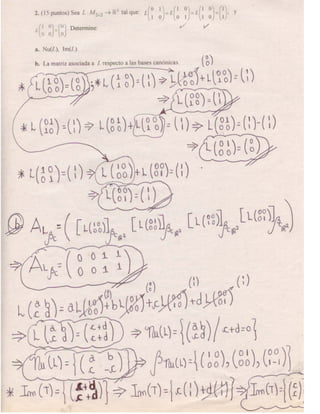 2. (15 puntos) Sea L : M₂ₓ₂ → ℝ² tal que: L(1 0; 1 0) = L(0 1; 1 0) = L(1 0; 0 1) = (1; 1), y
L(1 0; 0 0) = (0; 0). Determine:
a. Nu(L), Im(L).
b. La matriz asociada a L respecto a las bases canónicas.
* L(1 0; 0 0) = (0; 0); * L(1 0; 1 0) = (1; 1) ⇒ L(1 0; 0 0) + L(0 0; 1 0) = (1; 1)
⇒ L(0 0; 1 0) = (1; 1)
* L(0 1; 1 0) = (1; 1) ⇒ L(0 1; 0 0) + L(0 0; 1 0) = (1; 1) ⇒ L(0 1; 0 0) = (1; 1) - (1; 1)
⇒ L(0 1; 0 0) = (0; 0)
* L(1 0; 0 1) = (1; 1) ⇒ L(1 0; 0 0) + L(0 0; 0 1) = (1; 1)
⇒ L(0 0; 0 1) = (1; 1)
b) A_L βc = ( [L(1 0; 0 0)]βcℝ² [L(0 1; 0 0)]βcℝ² [L(0 0; 1 0)]βcℝ² [L(0 0; 0 1)]βcℝ² )
⇒ A_L βc = (0 0 1 1; 0 0 1 1)
L(a b; c d) = a L(1 0; 0 0) + b L(0 1; 0 0) + c L(0 0; 1 0) + d L(0 0; 0 1)
⇒ L(a b; c d) = (c+d; c+d) ⇒ Nu(L) = {(a b; c d) / c+d=0}
⇒ Nu(L) = {(a b; c -c)} ⇒ βNu(L) = {(1 0; 0 0), (0 1; 0 0), (0 0; 1 -1)}
* Im(T) = {(c+d; c+d)} ⇒ Im(T) = {c(1; 1) + d(1; 1)} ⇒ Im(T) = {(c; c)}